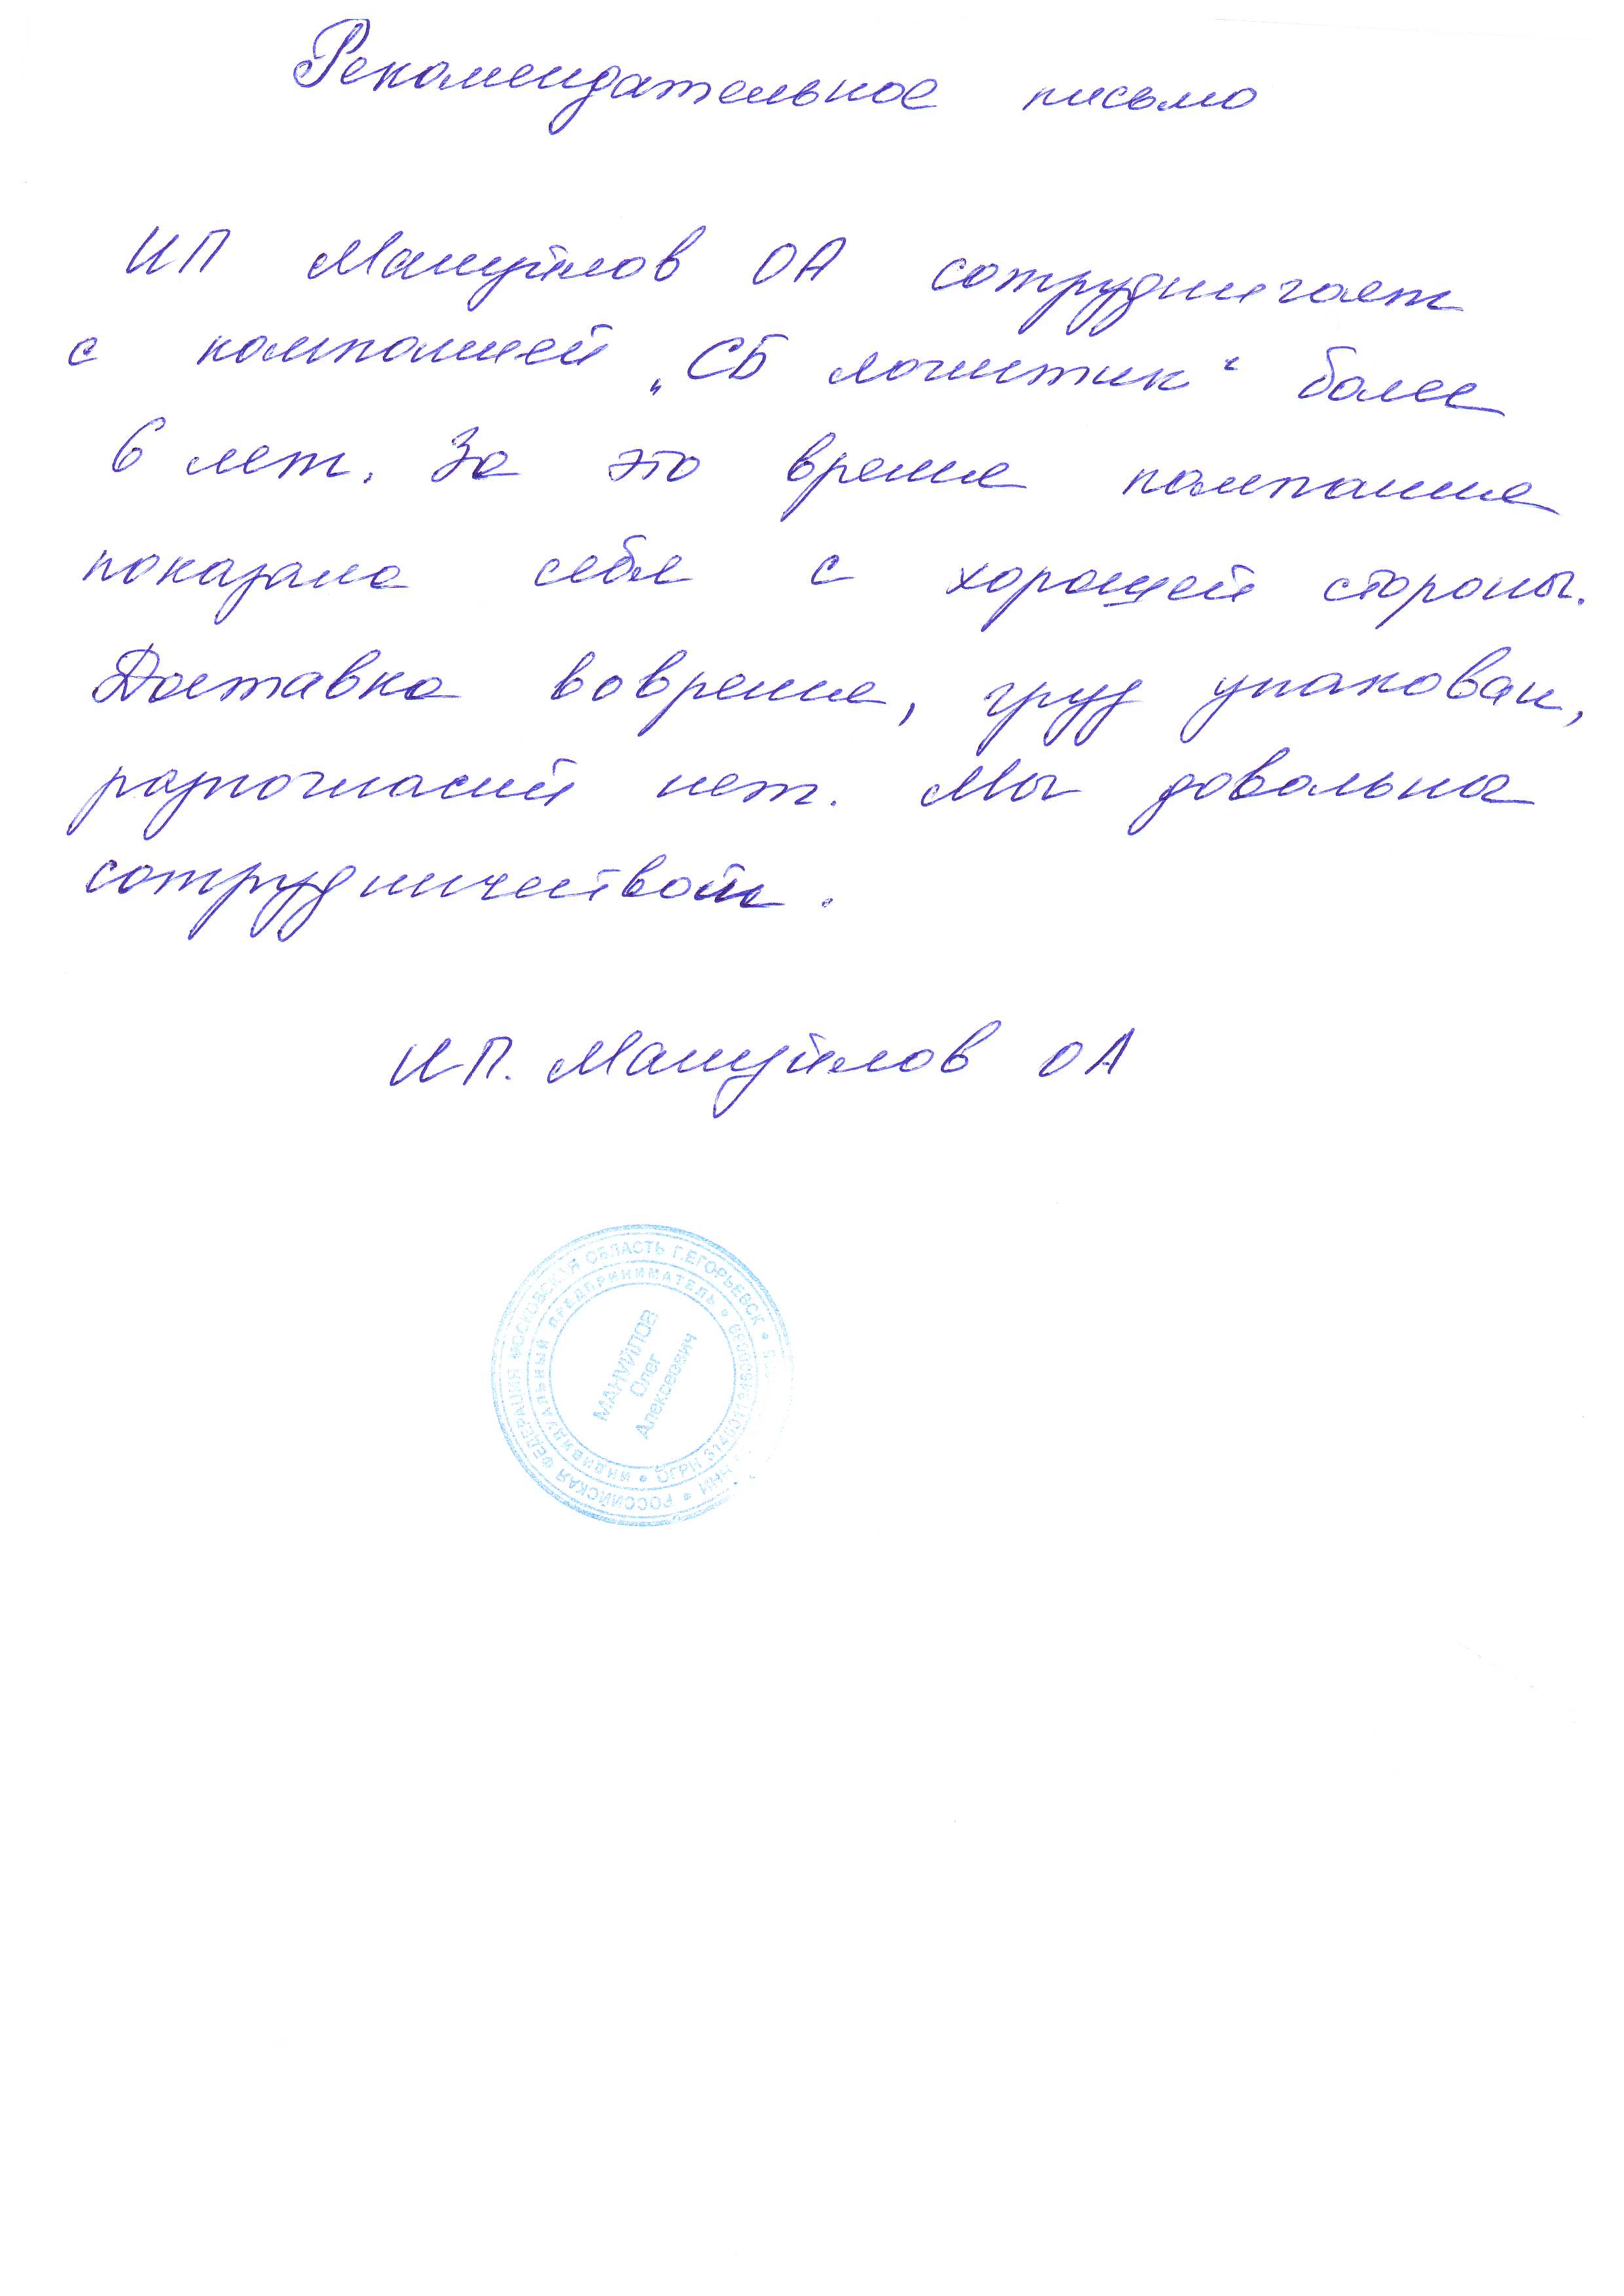 Рекомендательное письмо
ИП Мануйлов ОА сотрудничает
с компанией „СБ логистик“ более
6 лет. За это время компания
показала себя с хорошей стороны.
Доставка вовремя, груз упакован,
разногласий нет. Мы довольны
сотрудничеством.
ИП. Мануйлов ОА
РОССИЙСКАЯ ФЕДЕРАЦИЯ МОСКОВСКАЯ ОБЛАСТЬ Г.ЕГОРЬЕВСК
ИНН
ИНДИВИДУАЛЬНЫЙ ПРЕДПРИНИМАТЕЛЬ
ОГРН
МАНУЙЛОВ
Олег
Алексеевич